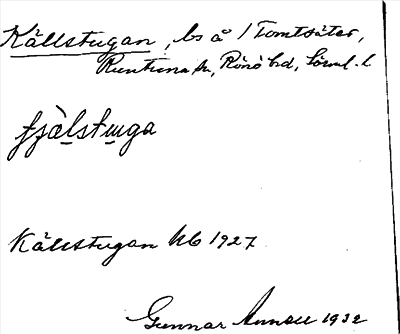 Källstugan, ls å / Tomtsäter,
Runtuna sn, Rönö hd, Söml. l.
tjälstuga
Källstugan Kb 1927
Gunnar Annell 1932